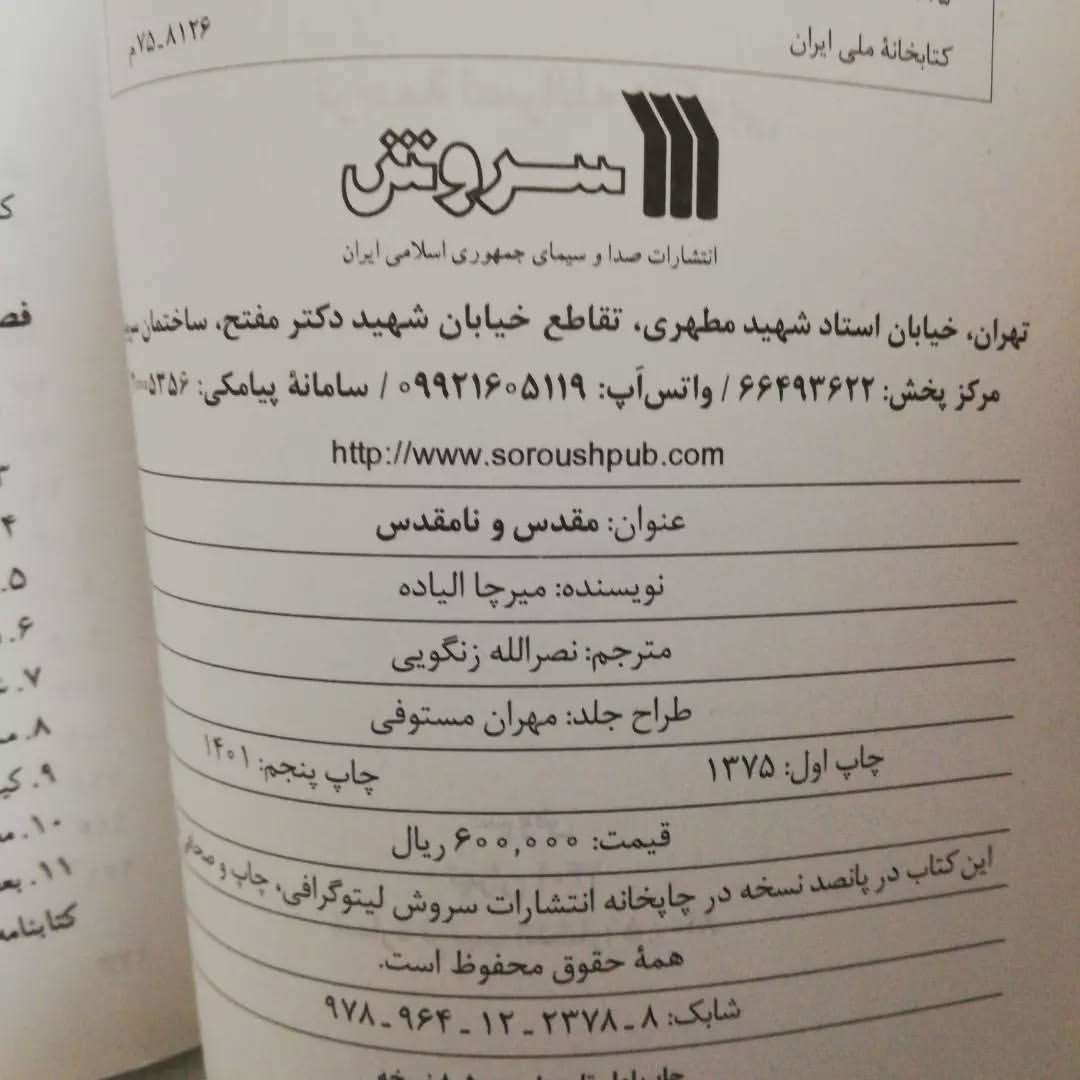 کتابخانهٔ ملی ایران
۷۵-۸۱۲۶م
سروش
انتشارات صدا و سیمای جمهوری اسلامی ایران
تهران، خیابان استاد شهید مطهری، تقاطع خیابان شهید دکتر مفتح، ساختمان
مرکز پخش: ۶۶۴۹۳۶۲۲ / واتس‌اَپ: ۰۹۹۲۱۶۰۵۱۱۹ / سامانهٔ پیامکی:
http://www.soroushpub.com
عنوان: مقدس و نامقدس
نویسنده: میرچا الیاده
مترجم: نصرالله زنگویی
طراح جلد: مهران مستوفی
چاپ اول: ۱۳۷۵ چاپ پنجم: ۱۴۰۱
قیمت: ۶۰۰,۰۰۰ ریال
این کتاب در پانصد نسخه در چاپخانه انتشارات سروش لیتوگرافی، چاپ و
همهٔ حقوق محفوظ است.
شابک: ۸-۲۳۷۸-۱۲-۹۶۴-۹۷۸
۴
۵.
۶.
۷.
۸.
۹.
۱۰.
۱۱.
کتابنامه